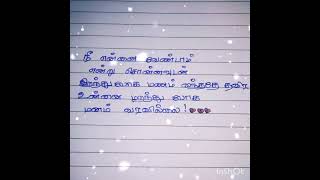 நீ என்னை வேண்டாம்
என்று சொன்னவுடன்
இறந்து போக மனம் வந்ததே தவிர
உன்னை மறந்து போக
மனம் வரவில்லை!
InShOt